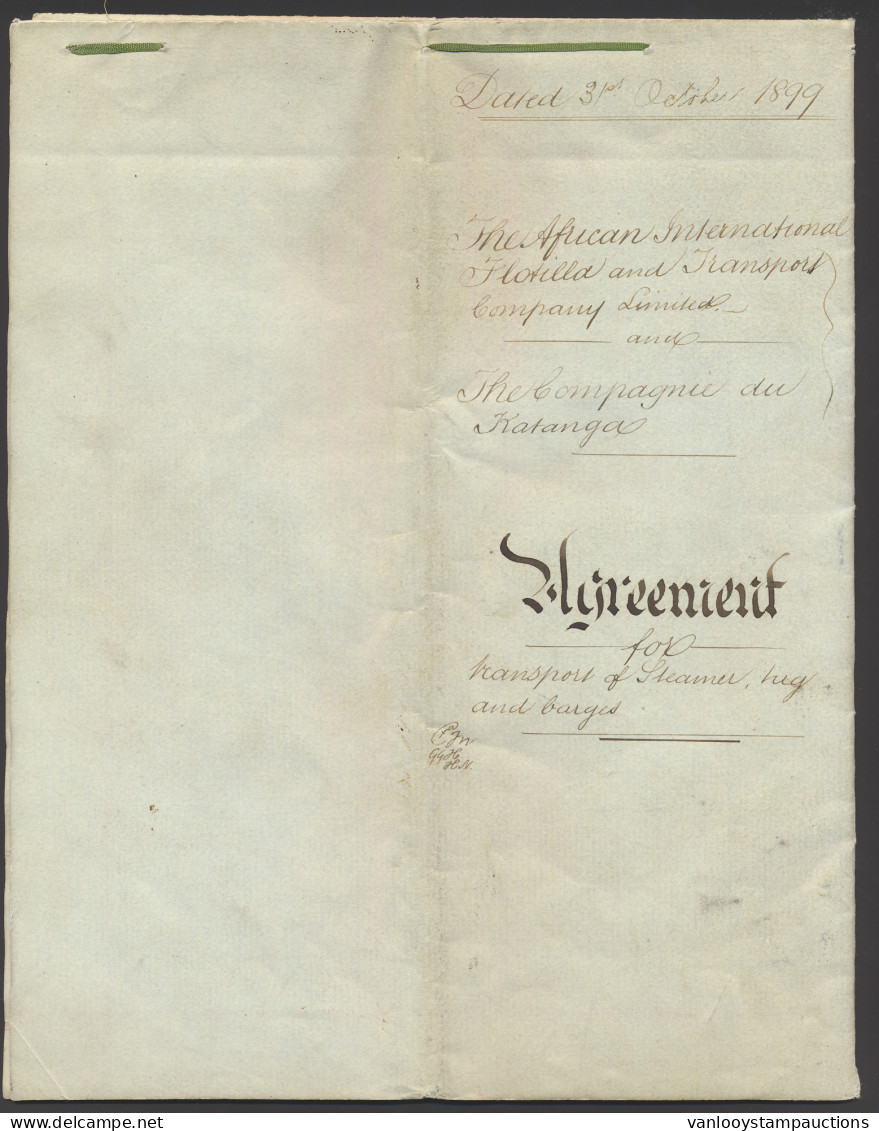 Dated 31st October 1899
The African International
Flotilla and Transport
Company Limited.
and
The Compagnie du
Katanga
Agreement
for
transport of Steamer, tug
and barges
delcampe.net
vanlooystampauctions